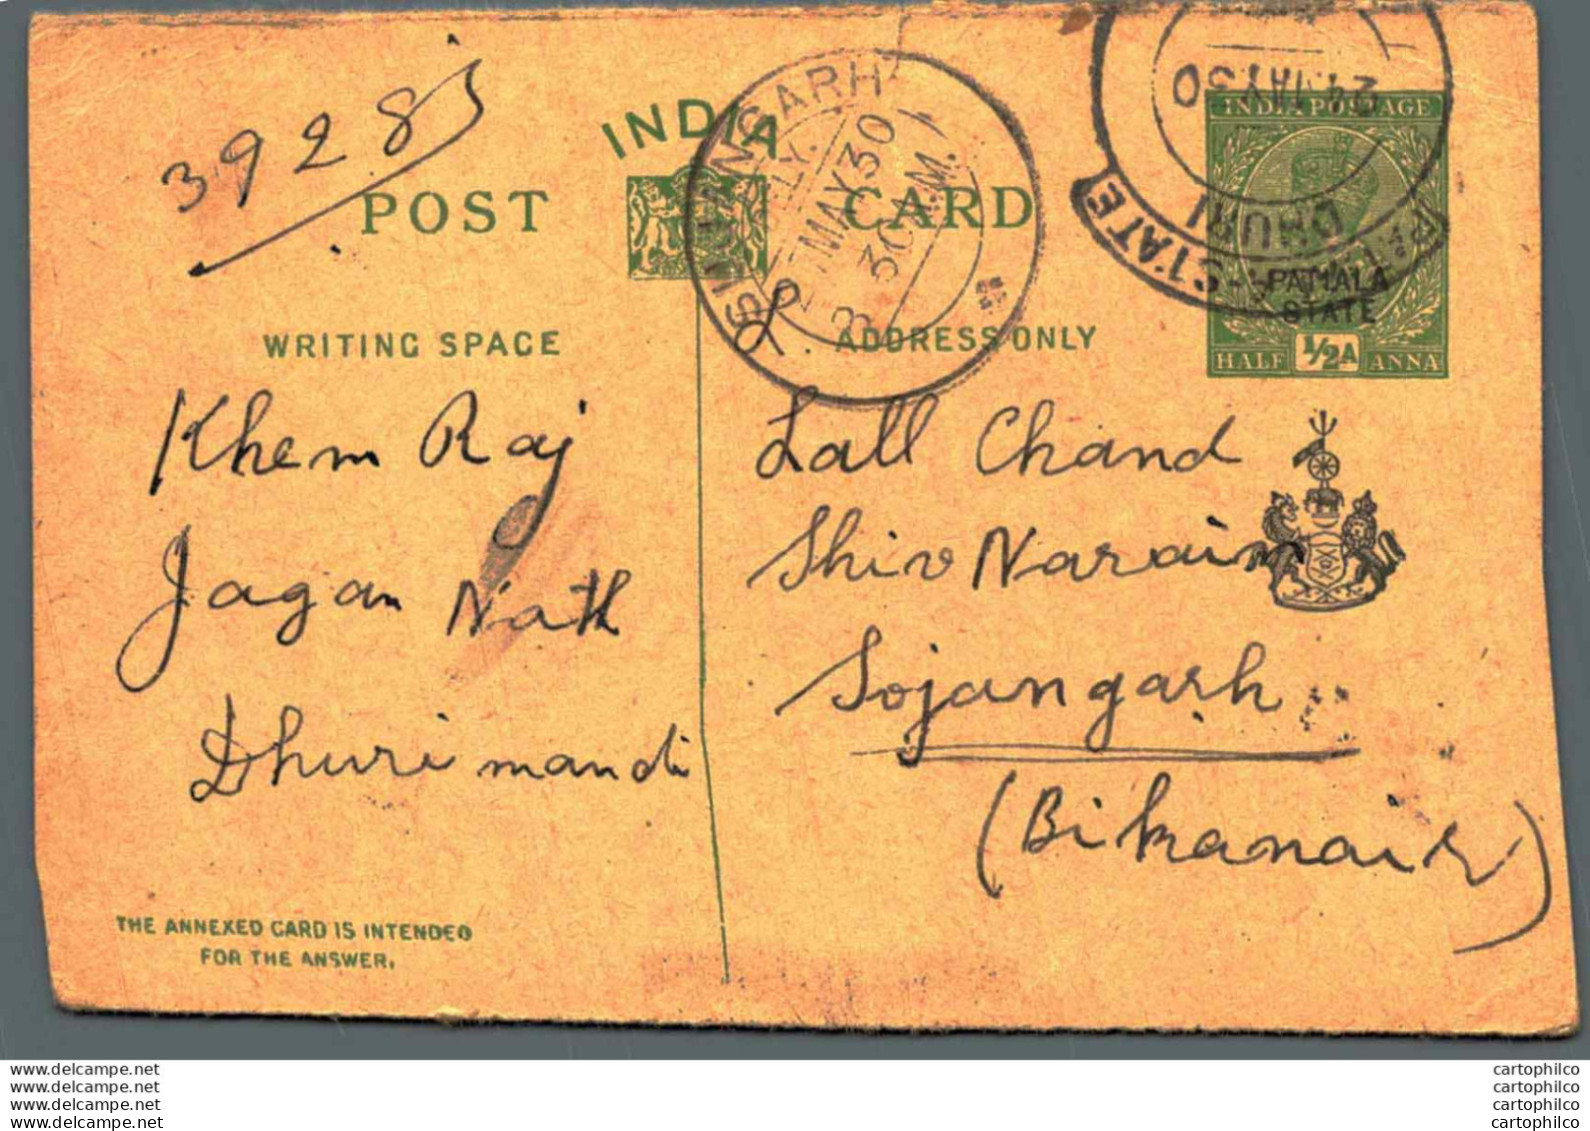 39285
INDIA
POST CARD
WRITING SPACE
ADDRESS ONLY
INDIA POSTAGE
PATIALA
STATE
HALF ½A ANNA
24 MAY 30
DHURI
STATE
MAY 30
3 30
Khem Raj
Jagan Nath
Dhuri mandi
Lall Chand
Shiv Narain
Sojangarh
(Bikanair)
THE ANNEXED CARD IS INTENDED
FOR THE ANSWER.
delcampe.net
delcampe.net
delcampe.net
delcampe.net
cartophilco
cartophilco
cartophilco
cartophilco